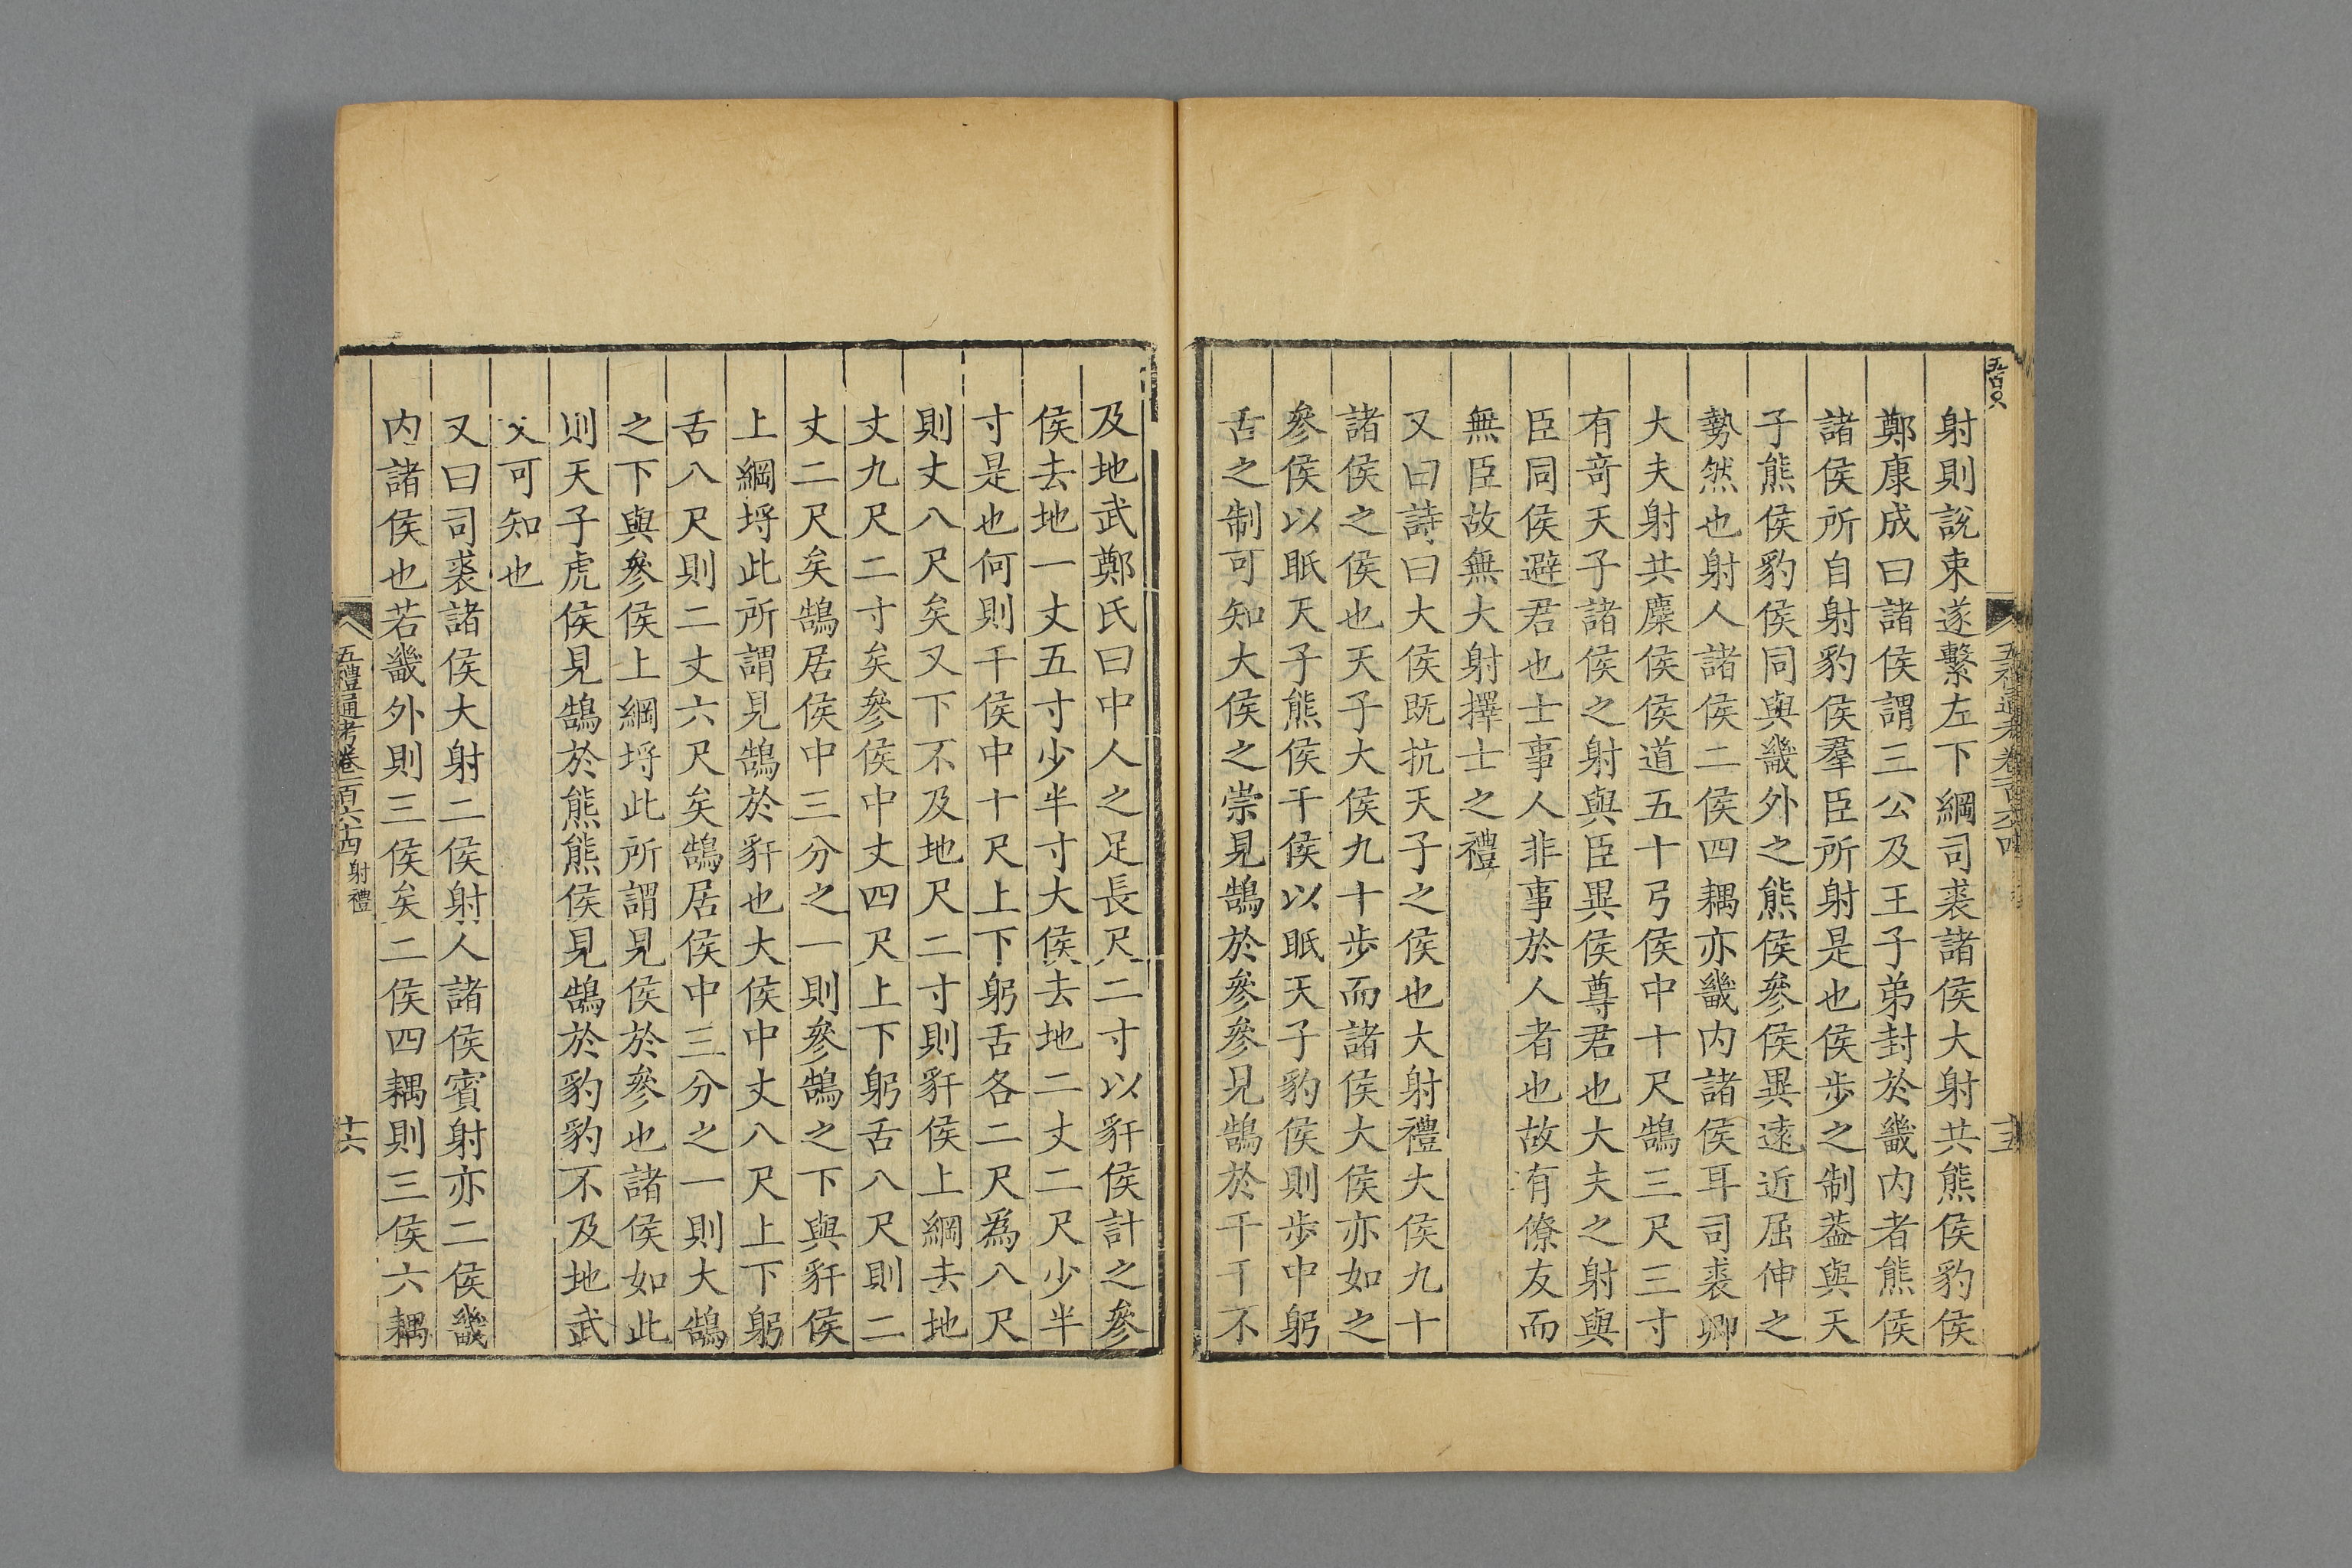 射則說束遂繫左下綱司裘諸侯大射共熊侯豹侯
鄭康成曰諸侯謂三公及王子弟封於畿內者熊侯
諸侯所自射豹侯羣臣所射是也侯步之制葢與天
子熊侯豹侯同與畿外之熊侯參侯異遠近屈伸之
勢然也射人諸侯二侯四耦亦畿內諸侯耳司裘卿
大夫射共麋侯侯道五十弓侯中十尺鵠三尺三寸
有竒天子諸侯之射與臣異侯尊君也大夫之射與
臣同侯避君也士事人非事於人者也故有僚友而
無臣故無大射擇士之禮
又曰詩曰大侯既抗天子之侯也大射禮大侯九十
諸侯之侯也天子大侯九十步而諸侯大侯亦如之
參侯以眡天子熊侯干侯以眡天子豹侯則步中躬
舌之制可知大侯之崇見鵠於參參見鵠於干干不
及地武鄭氏曰中人之足長尺二寸以豻侯計之參
侯去地一丈五寸少半寸大侯去地二丈二尺少半
寸是也何則干侯中十尺上下躬舌各二尺爲八尺
則丈八尺矣又下不及地尺二寸則豻侯上綱去地
丈九尺二寸矣參侯中丈四尺上下躬舌八尺則二
丈二尺矣鵠居侯中三分之一則參鵠之下與豻侯
上綱埒此所謂見鵠於豻也大侯中丈八尺上下躬
舌八尺則二丈六尺矣鵠居侯中三分之一則大鵠
之下與參侯上綱埒此所謂見侯於參也諸侯如此
則天子虎侯見鵠於熊熊侯見鵠於豹豹不及地武
又可知也
又曰司裘諸侯大射二侯射人諸侯賓射亦二侯畿
內諸侯也若畿外則三侯矣二侯四耦則三侯六耦
五禮通考卷一百六十四 射禮
十六